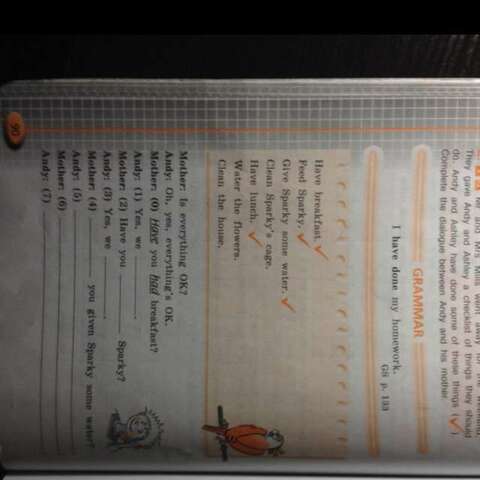 Mr and Mrs Mills went away for the weekend.
They gave Andy and Ashley a checklist of things they should
do. Andy and Ashley have done some of these things (✓).
Complete the dialogue between Andy and his mother.
GRAMMAR
I have done my homework.
GS p. 193
Have breakfast. ✓
Feed Sparky. ✓
Give Sparky some water. ✓
Clean Sparky's cage.
Have lunch. ✓
Water the flowers.
Clean the house.
Mother: Is everything OK?
Andy: Oh, yes, everything's OK.
Mother: (0) Have you had breakfast?
Andy: (1) Yes, we ________.
Mother: (2) Have you ________ Sparky?
Andy: (3) Yes, we ________.
Mother: (4) ________ you given Sparky some water?
Andy: (5) ________
Mother: (6) ________
Andy: (7) ________
90